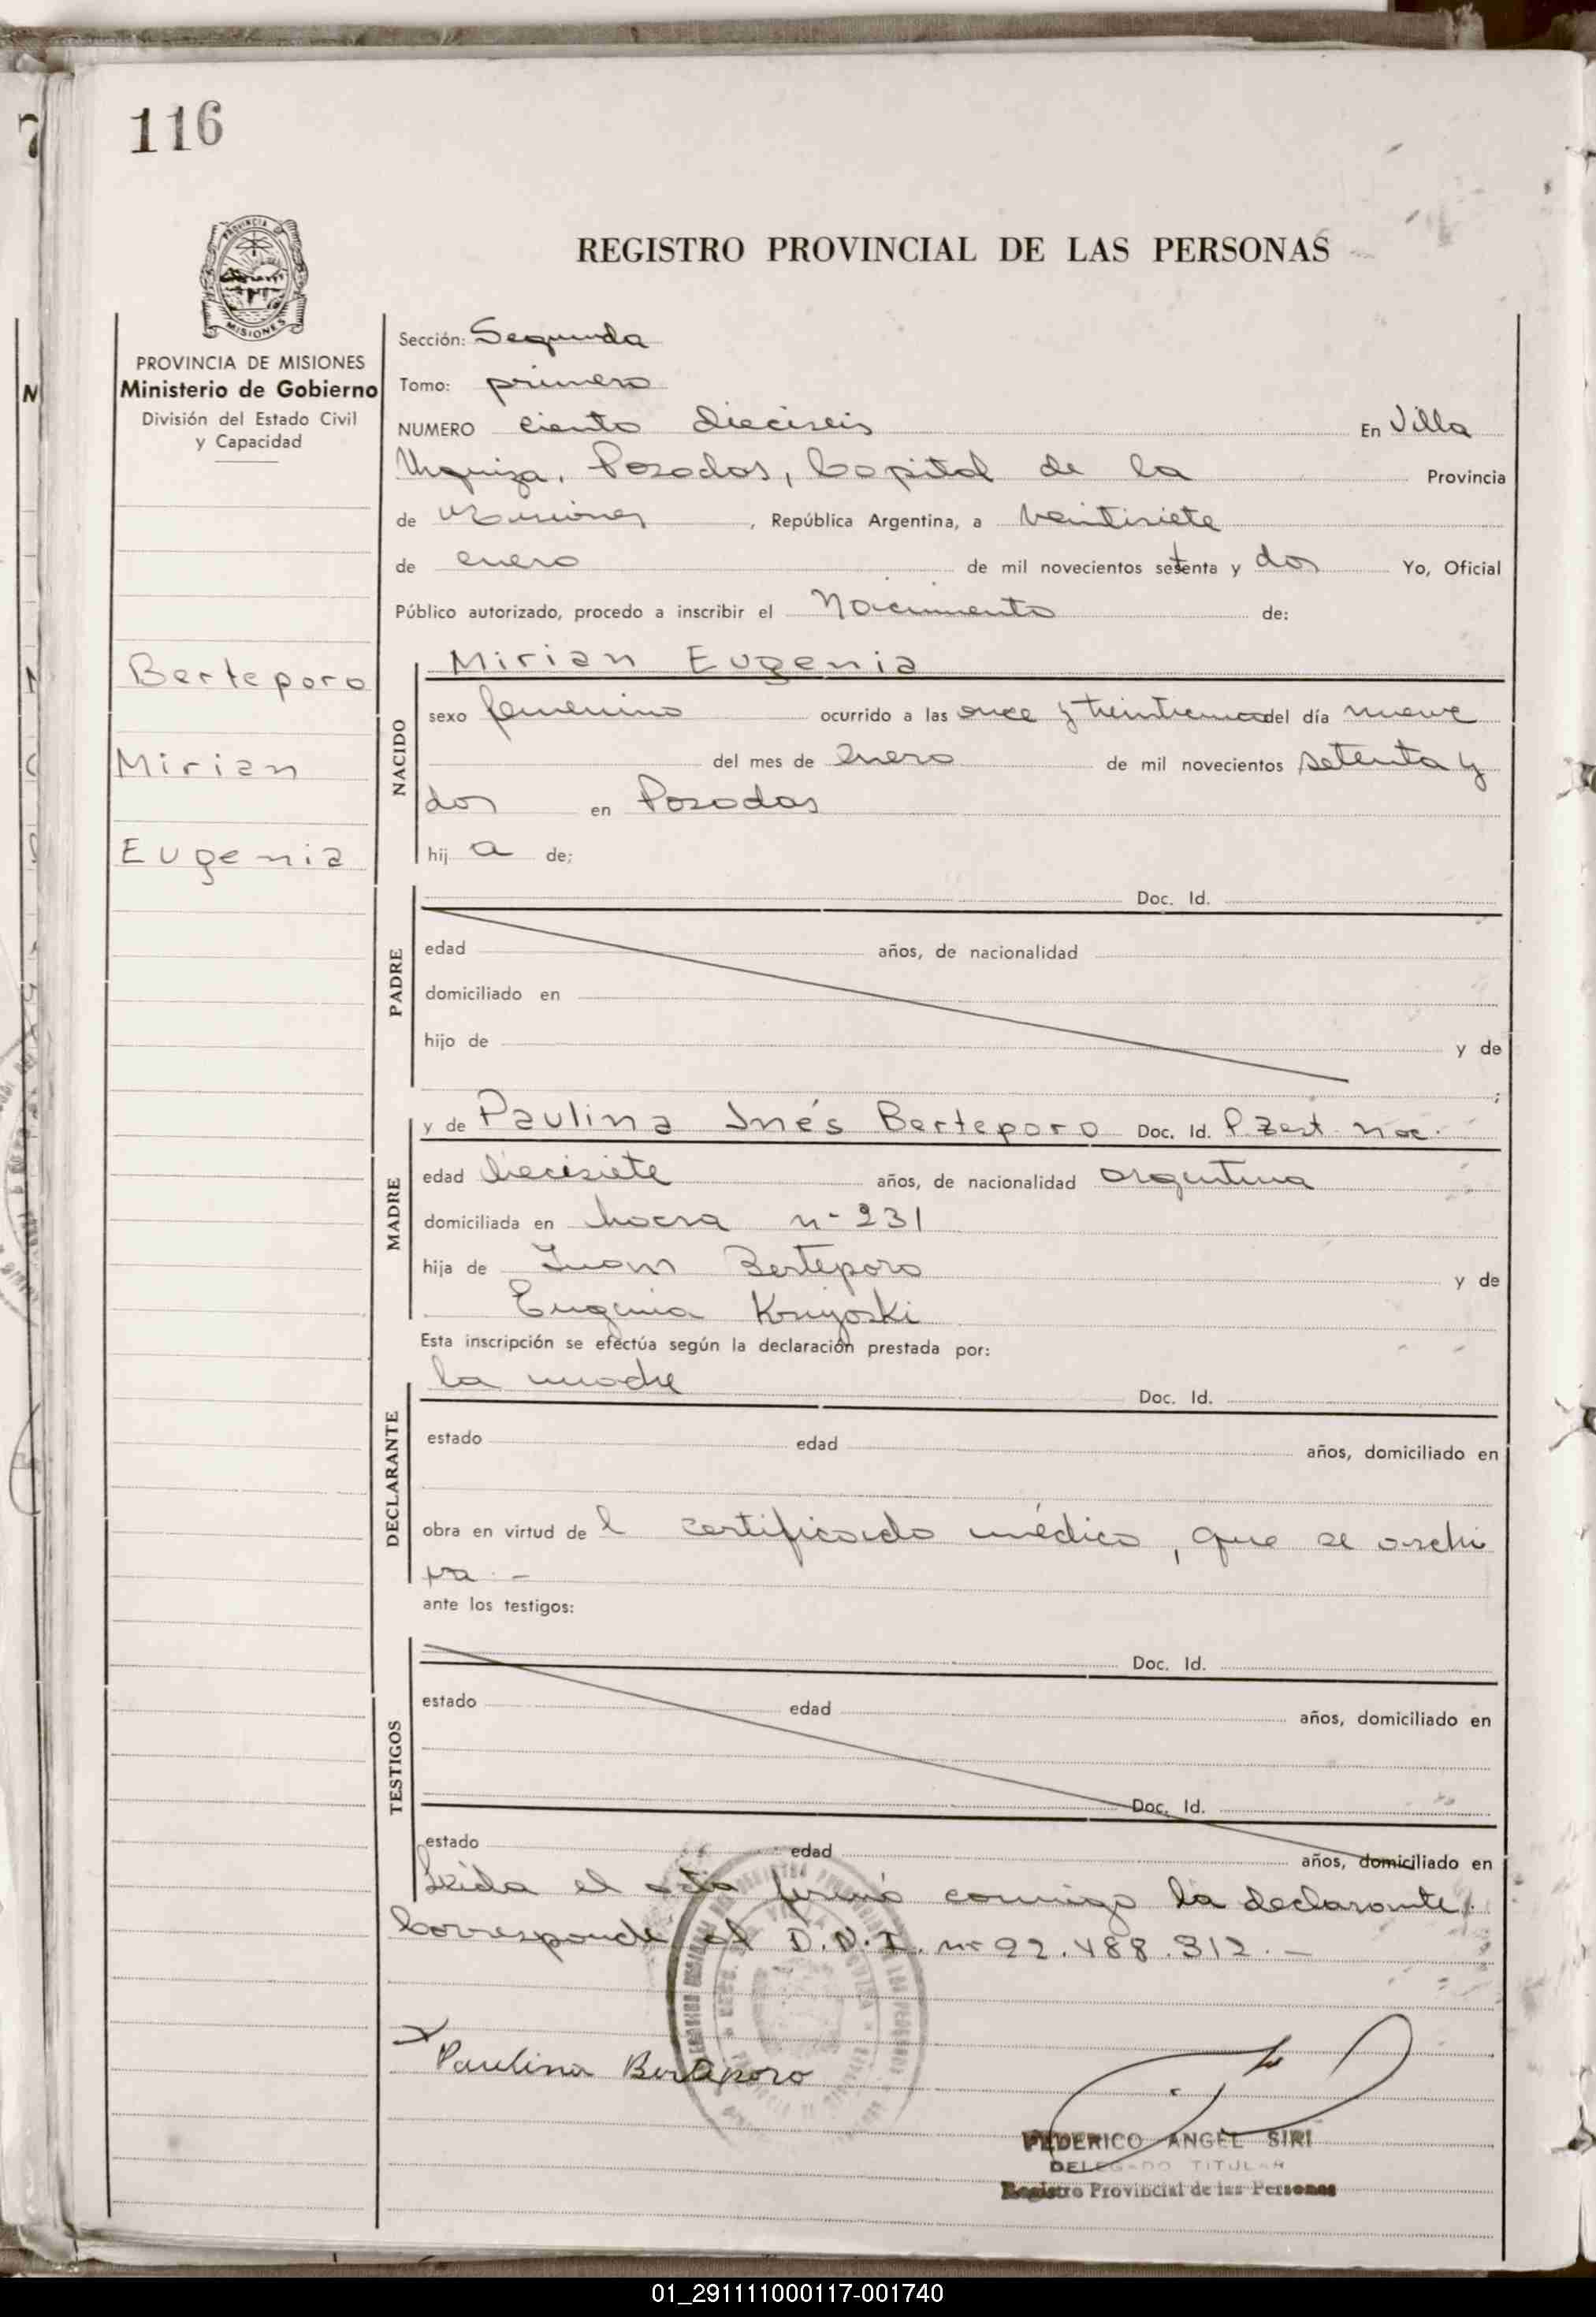 116
PROVINCIA DE MISIONES
Ministerio de Gobierno
División del Estado Civil
y Capacidad
Berteporo
Mirian
Eugenia
REGISTRO PROVINCIAL DE LAS PERSONAS
Sección: Segunda
Tomo: primero
NUMERO ciento dieciseis En Villa
Urquiza, Posadas, Capital de la Provincia
de Misiones, República Argentina, a veintisiete
de enero de mil novecientos setenta y dos Yo, Oficial
Público autorizado, procedo a inscribir el Nacimiento de:
NACIDO
Mirian Eugenia
sexo femenino ocurrido a las once y treinta del día nueve
del mes de Enero de mil novecientos setenta y
dos en Posadas
hij a de;
PADRE
Doc. Id.
edad años, de nacionalidad
domiciliado en
hijo de y de
;
MADRE
y de Paulina Inés Berteporo Doc. Id. P. Zert nac.
edad diecisiete años, de nacionalidad argentina
domiciliada en n- 231
hija de Juan Berteporo y de
Eugenia
Esta inscripción se efectúa según la declaración prestada por:
DECLARANTE
la madre Doc. Id.
estado edad años, domiciliado en
obra en virtud de l certificado médico, que se archi
va. -
ante los testigos:
TESTIGOS
Doc. Id.
estado edad años, domiciliado en
Doc. Id.
estado edad años, domiciliado en
Leída el acta firmó conmigo la declarante.
Corresponde al D.N.I. nº 22.488.312. -
Paulina Berteporo
FEDERICO ANGEL SIRI
DELEGADO TITULAR
Registro Provincial de las Personas
01_291111000117-001740